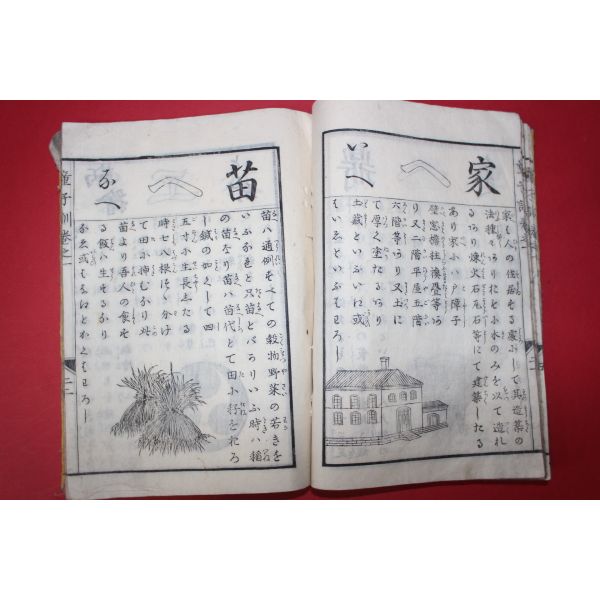 家
ヘ
いへ
家ハ人の住居をする處ふして其造築の
法種々あり
るあり煉火石瓦石等にて建築したる
あり家ふハ戸障子
壁窓檐柱 疊等あ
り又二階平屋五階
六階等あり又土に
て厚く塗たるあり
土藏といふ
といふもわろ
苗
ヘ
なへ
苗ハ通例すべての穀物野菜の若きを
いふなれど只苗とバかりいふ時ハ稲
の苗なり苗ハ苗代とて田小籾をおろ
し鍼の如くして四
五寸小生長したる
時七八根づゝ分け
て田小 なり此
苗より吾人の食す
る飯ハ生ずるなり
なゑ或ハ とかくもわろし
童子訓卷之一